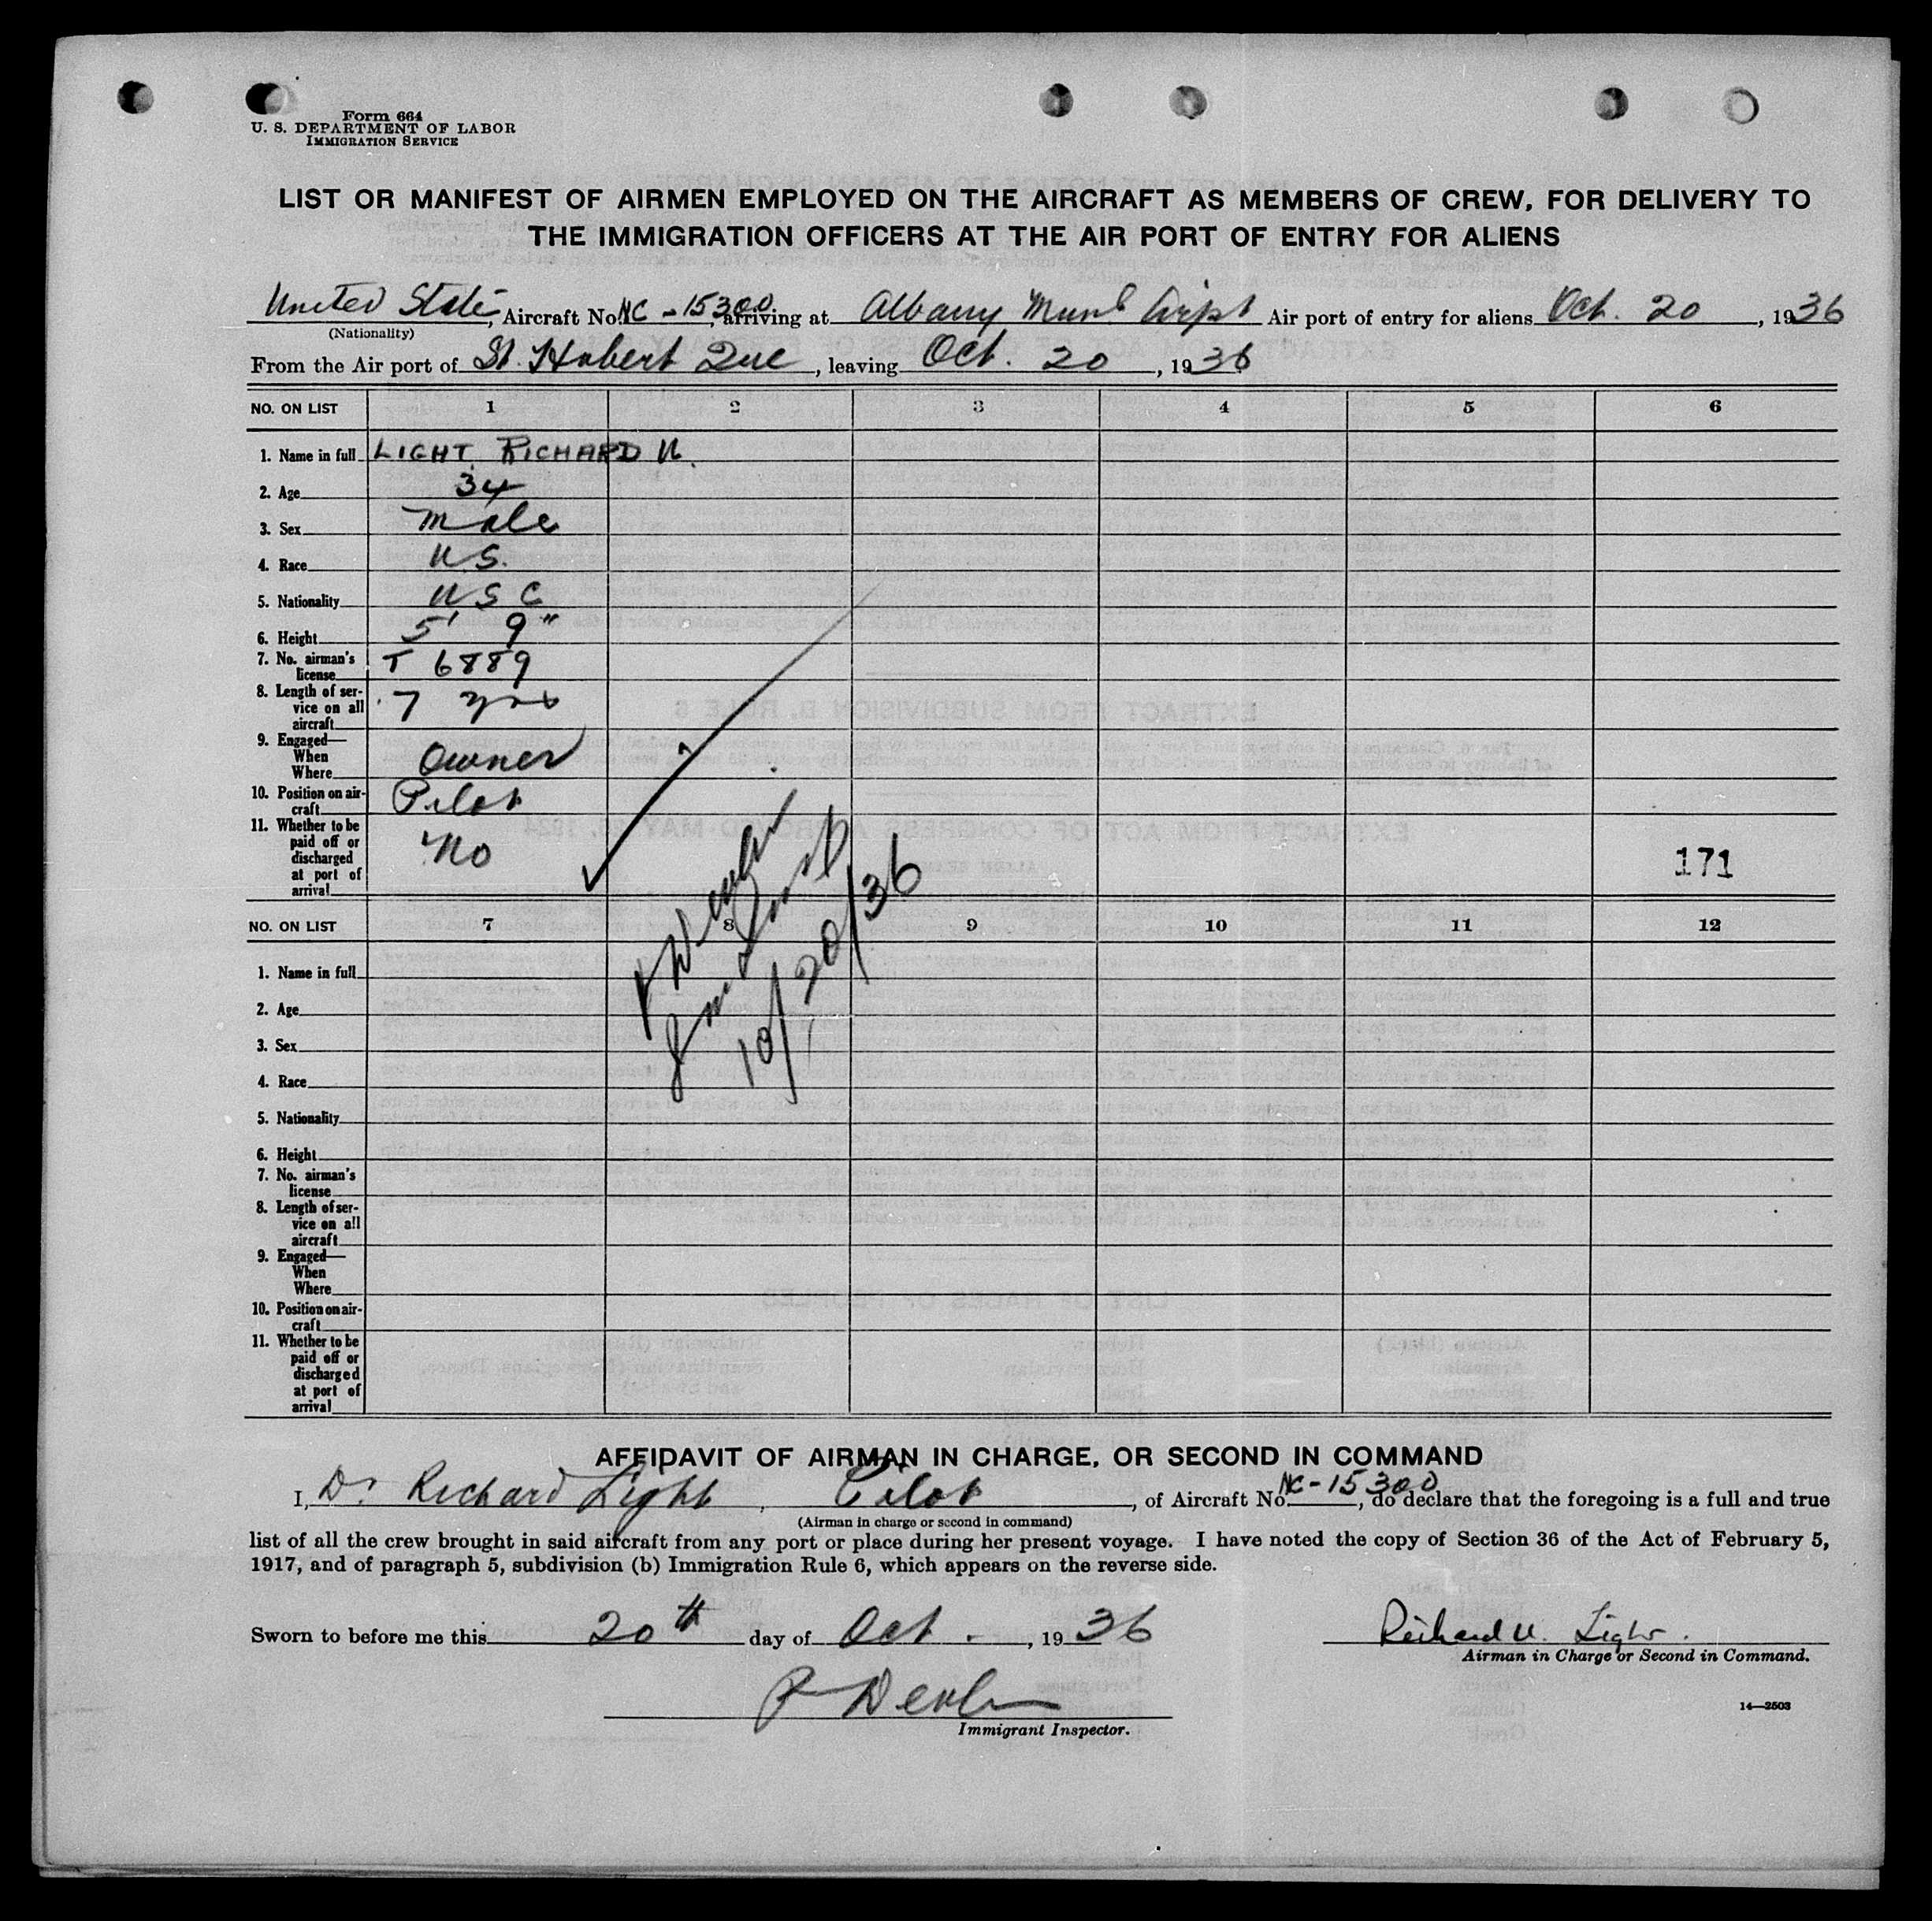 Form 664
U. S. DEPARTMENT OF LABOR
IMMIGRATION SERVICE
LIST OR MANIFEST OF AIRMEN EMPLOYED ON THE AIRCRAFT AS MEMBERS OF CREW, FOR DELIVERY TO
THE IMMIGRATION OFFICERS AT THE AIR PORT OF ENTRY FOR ALIENS
United State, Aircraft No. NC-15300, arriving at Albany Munl Airpt Air port of entry for aliens Oct. 20, 1936
(Nationality)
From the Air port of St. Hubert Que, leaving Oct. 20, 1936
NO. ON LIST 1 2 3 4 5 6
1. Name in full LIGHT RICHARD U.
2. Age 34
3. Sex Male
4. Race U.S.
5. Nationality U S C
6. Height 5' 9"
7. No. airman's
license T 6889
8. Length of ser-
vice on all
aircraft 7 yrs
9. Engaged—
When
Where Owner
10. Position on air-
craft Pilot
11. Whether to be
paid off or
discharged
at port of
arrival No
171
NO. ON LIST 7 8 9 10 11 12
1. Name in full
2. Age
3. Sex
4. Race
5. Nationality
6. Height
7. No. airman's
license
8. Length of ser-
vice on all
aircraft
9. Engaged—
When
Where
10. Position on air-
craft
11. Whether to be
paid off or
discharged
at port of
arrival
10/20/36
AFFIDAVIT OF AIRMAN IN CHARGE, OR SECOND IN COMMAND
I, Dr Richard Light, Pilot, of Aircraft No. NC-15300, do declare that the foregoing is a full and true
(Airman in charge or second in command)
list of all the crew brought in said aircraft from any port or place during her present voyage. I have noted the copy of Section 36 of the Act of February 5,
1917, and of paragraph 5, subdivision (b) Immigration Rule 6, which appears on the reverse side.
Sworn to before me this 20th day of Oct., 1936
Richard U. Light.
Airman in Charge or Second in Command.
Immigrant Inspector.
14—2503